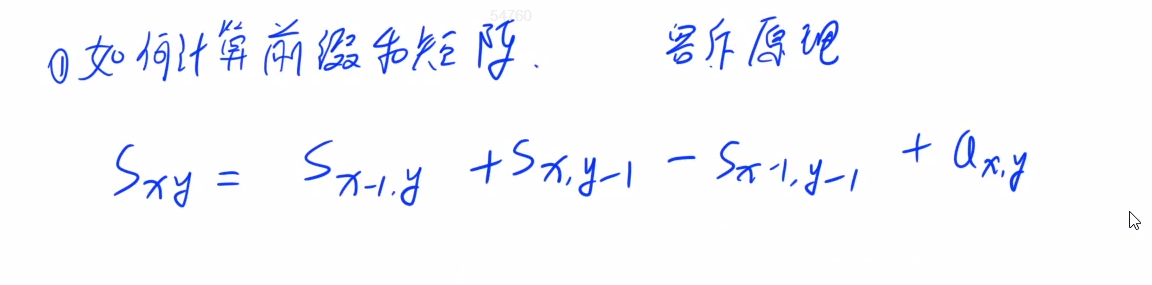 54760
①如何计算前缀和矩阵. 容斥原理
Sxy = Sx-1,y + Sx,y-1 - Sx-1,y-1 + ax,y